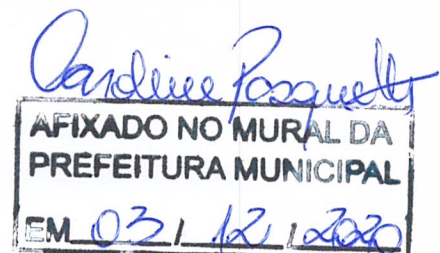 Caroline Pasquetti
AFIXADO NO MURAL DA
PREFEITURA MUNICIPAL
EM 03 / 12 / 2020